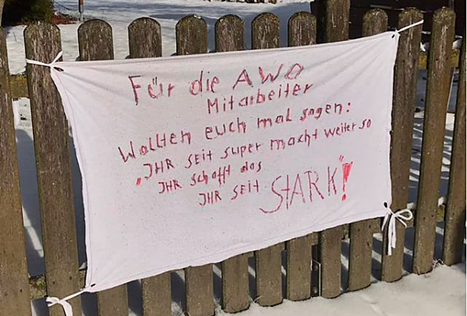 Für die AWO
Mitarbeiter
Wollten euch mal sagen:
„IHR SEIT super macht weiter so
IHR schafft das
IHR SEIT STARK!"